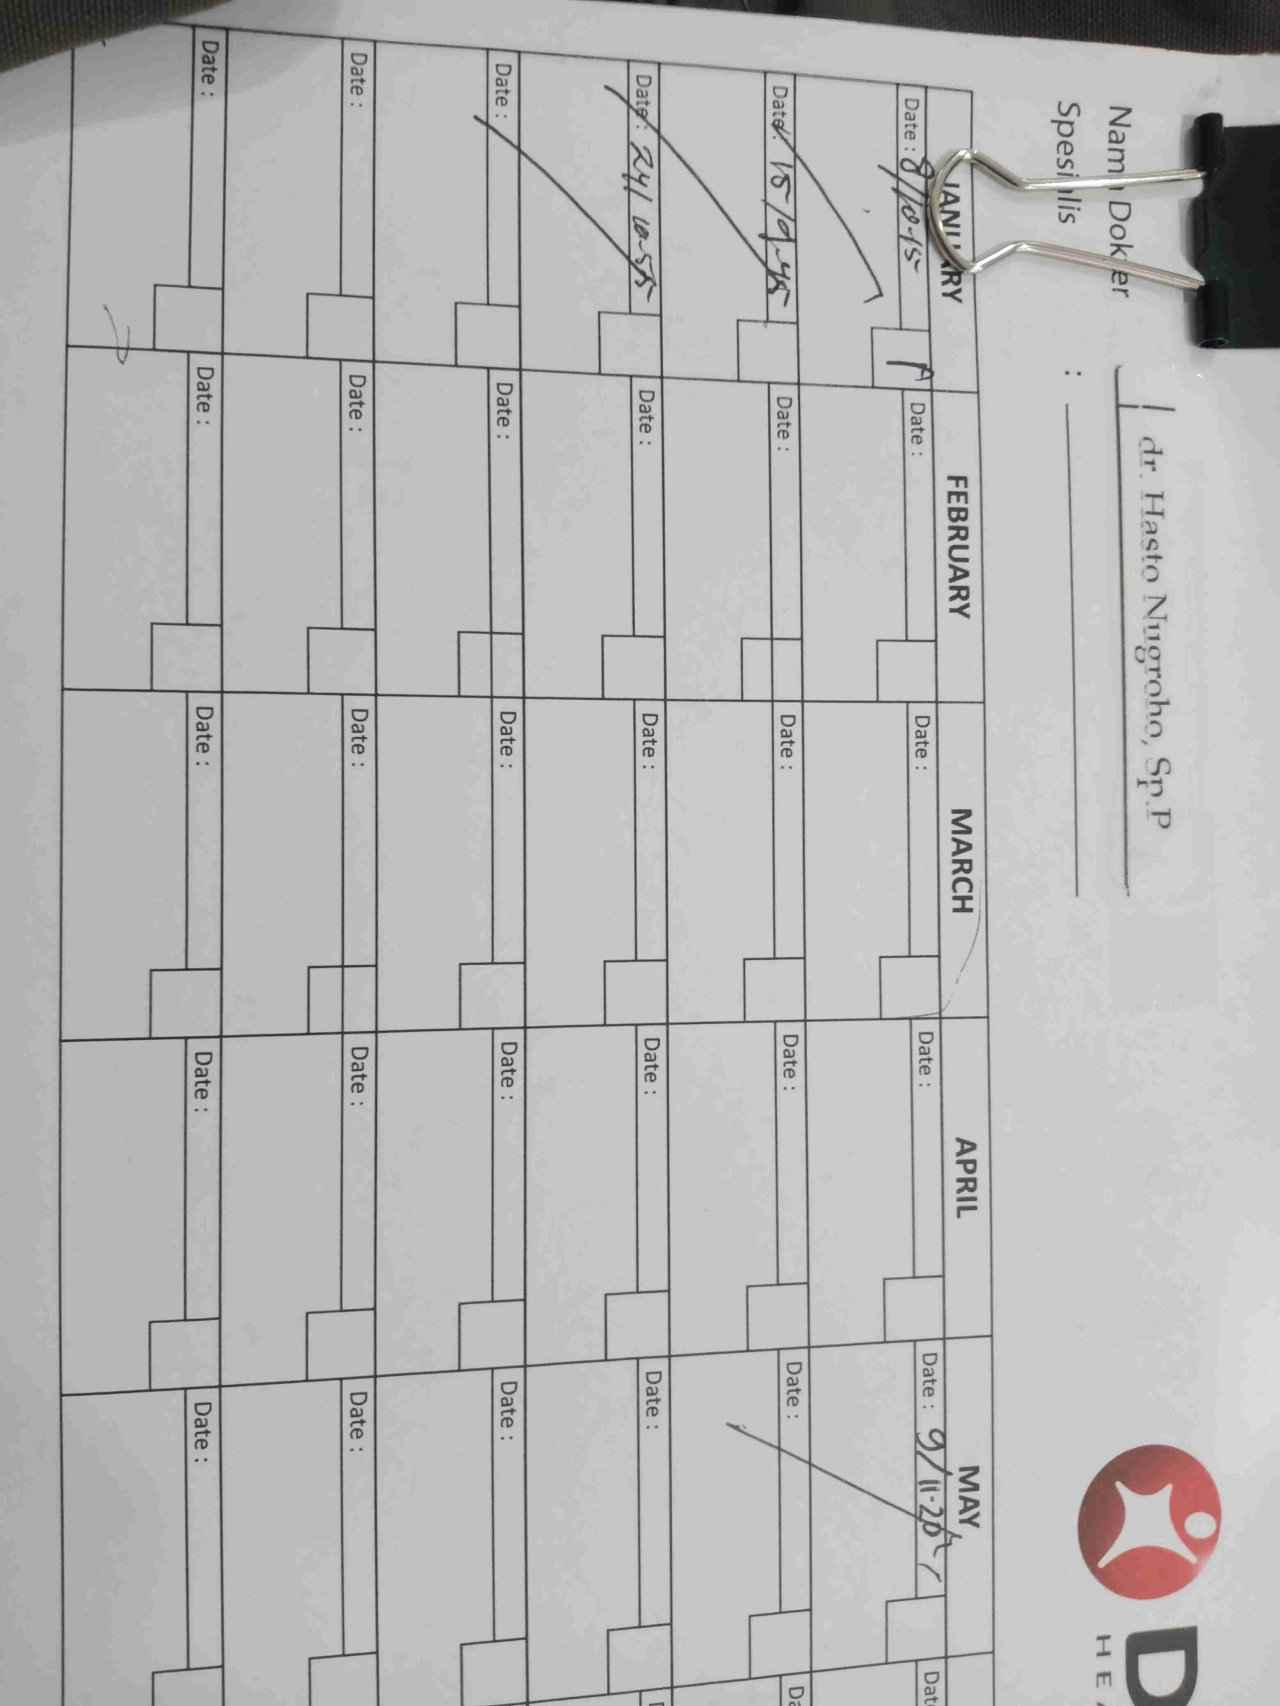 Nama Dokter
dr. Hasto Nugroho, Sp.P
Spesialis :
D
HEA
JANUARY FEBRUARY MARCH APRIL MAY
Date : 8/10-15 Date : Date : Date : Date : 9/11-20 Dat
Date : 15/9-45 Date : Date : Date : Date : Da
Date : 24/10-55 Date : Date : Date : Date : D
Date : Date : Date : Date : Date :
Date : Date : Date : Date : Date :
Date : Date : Date : Date : Date :